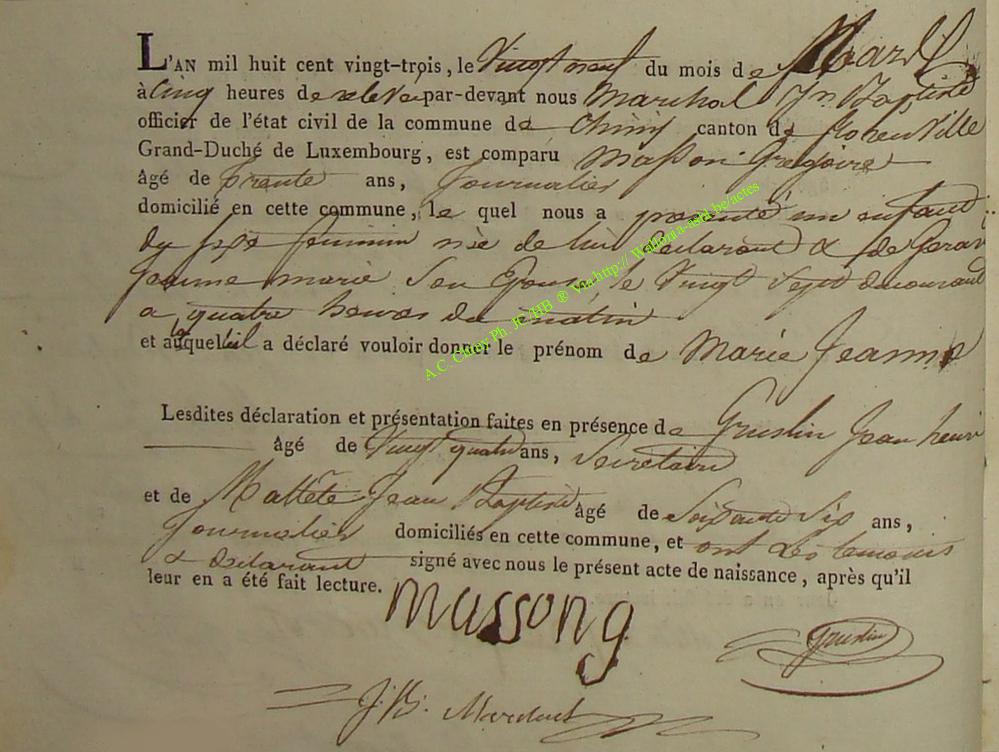 L'AN mil huit cent vingt-trois, le Vingt neuf du mois de Mars
à Cinq heures de relevée par-devant nous Marchal Jn Baptiste
officier de l'état civil de la commune de Chiny canton de florenville
Grand-Duché de Luxembourg, est comparu Masson Gregoire
âgé de trente ans, Journalier
domicilié en cette commune, le quel nous a présenté un enfant
du sexe feminin née de lui declarant & de Gerar
Jeanne marie Son Epouse, le Vingt Sept du courant
a quatre heures du matin
et auquel il a déclaré vouloir donner le prénom de Marie Jeanne
Lesdites déclaration et présentation faites en présence de Gruslin Jean henri
âgé de Vingt quatre ans, Secretaire
et de Jean Baptiste âgé de Soixante Six ans,
Journalier domiciliés en cette commune, et ont Les temoins
& declarant signé avec nous le présent acte de naissance, après qu'il
leur en a été fait lecture.
massong
Gruslin
J. B. Marchal
A.C. Chiny Ph. JC/HB ® Via http:// Wallonia-asbl.be/actes